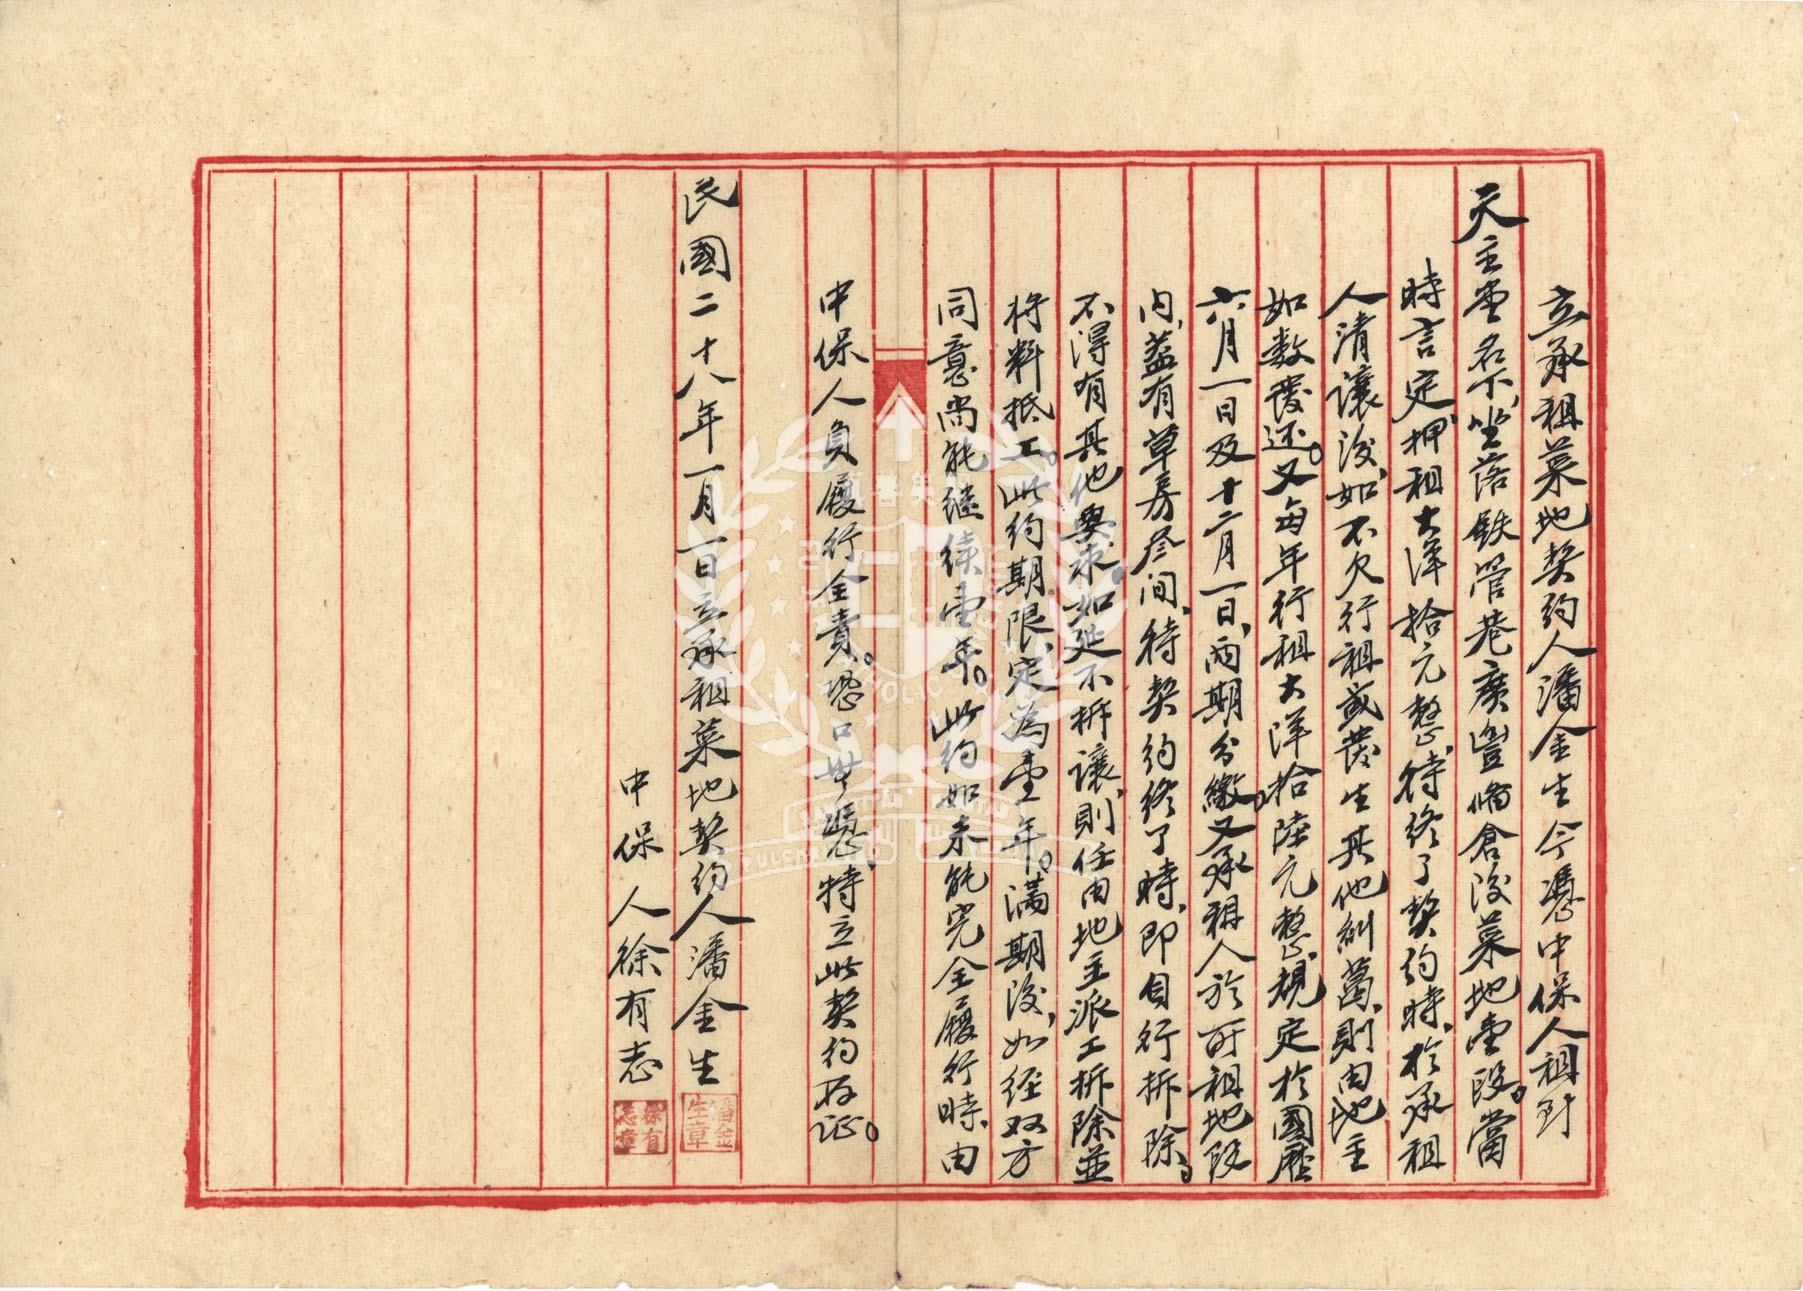 立承租菜地契約人潘金生今憑中保人租到
天主堂名下、坐落鉄管巷廣豐備倉後菜地壹段。當
時言定、押租大洋拾元整、待終了契約時、於承租
人清讓後、如不欠行租或發生其他糾葛、則由地主
如数發还。又每年行租大洋拾陸元整、規定於國歷
六月一日及十二月一日、兩期分繳、又承租人於所租地段
内、蓋有草房叁间、待契約終了時、即自行拆除、
不得有其他要求。如延不拆讓、則任由地主派工拆除並
将料抵工。此約期限、定為壹年。满期後、如经双方
同意尚能继续壹年。此約如未能完全履行時、由
中保人負履行全責。恐口無憑、特立此契約存证。
民國二十八年一月一日立承租菜地契約人潘金生
潘金生章
中保人徐有志
徐有志章